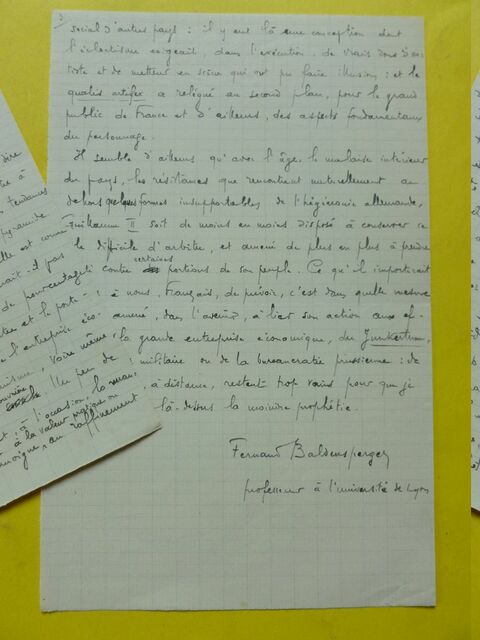 3
social d'autres pays : il y eut là une conception dont
l'éclectisme exigeait, dans l'exécution, de vrais dons d'ar-
tiste et de metteur en scène qui ont pu faire illusion ; et le
qualis artifex a relégué au second plan, pour le grand
public de France et d'ailleurs, des aspects fondamentaux
du personnage.
Il semble d'ailleurs qu'avec l'âge, le malaise intérieur
du pays, les résistances que rencontrent naturellement au
dehors quelques formes insupportables de l'hégémonie allemande,
Guillaume II soit de moins en moins disposé à conserver ce
rôle difficile d'arbitre, et amené de plus en plus à prendre
parti contre certaines portions de son peuple. Ce qu'il importerait
à nous, Français, de prévoir, c'est dans quelle mesure
amené, dans l'avenir, à lier son action aux ef-
la grande entreprise économique, du Junkertum,
militaire ou de la bureaucratie prussienne : de
à distance, restent trop vains pour que je
là-dessus la moindre prophétie.
Fernand Baldensperger
professeur à l'université de Lyon
dire
tre à
tendances
pyramide
elle est
ait-il pas
de pourcentage
tre et le porte-
l'entreprise éco-
isme, voire même
ouvrière
Un peu de
: à l'occasion, la man-
à la valeur magique ou
au raffinement